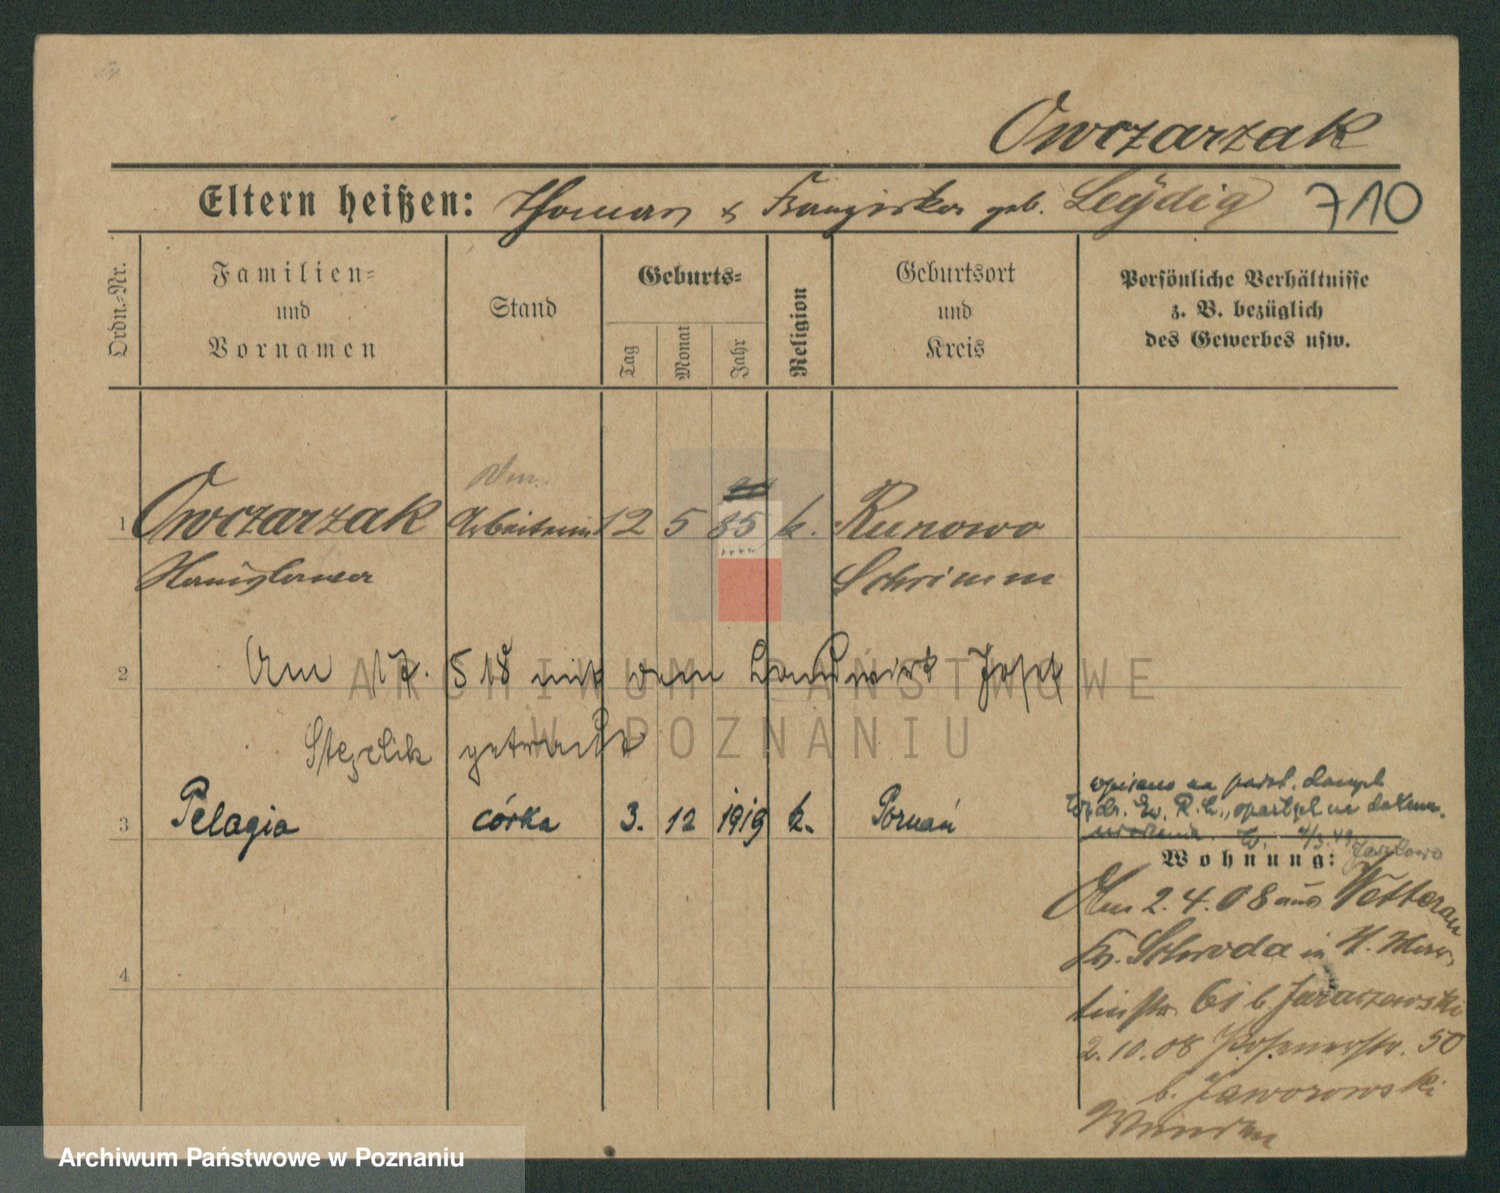 Owczarzak
Eltern heißen: Thomas & Franziska geb. Leÿdig 710
Ordn.=Nr.
Familien=
und
Vornamen
Stand
Geburts=
Tag
Monat
Jahr
Religion
Geburtsort
und
Kreis
Persönliche Verhältnisse
z. B. bezüglich
des Gewerbes usw.
1 Owczarzak Arbeiterin 12 5 85 k. Runowo
Stanislawa Schrimm
2 Am 17. 5 18 mit dem Landwirt Josef
getraut
3 Pelagia córka 3. 12 1919 k. Poznań
Wohnung:
Am 2.4.08 aus
Kr. Schroda in
61 b. Jaraczewski
2.10.08 Posenerstr. 50
b. Jaworowski
4
ARCHIWUM PAŃSTWOWE
W POZNANIU
Archiwum Państwowe w Poznaniu